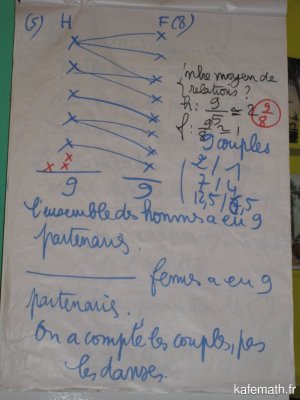 (5) H F(8)
nbre moyen de
relations?
h: 9/5 ≃ 2
f: 9/8 ≃ 1
9/8
9 couples
2 / 1
7 / 4
9 9
l'ensemble des hommes a eu 9
partenaires.
femmes a eu 9
partenaires.
On a compté les couples, pas
les danses.
kafemath.fr